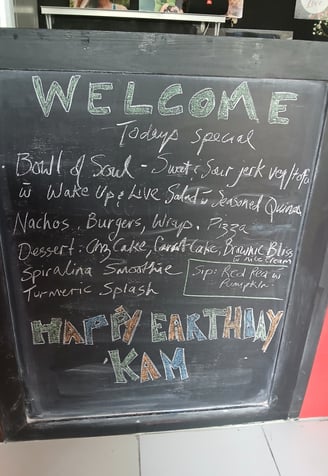 WELCOME
Todays special
Bowl of Soul - Sweet & Sour jerk veg/tofu
w Wake Up & LIVE Salad w Seasoned Quinoa
Nachos, Burgers, Wrap, Pizza
Dessert: Cake, Carrot Cake, Brownie Bliss
w nice cream
Spirulina Smoothie
Sip: Red Pea w
Pumpkin
Turmeric Splash
HAPPY EARTHDAY
KAM